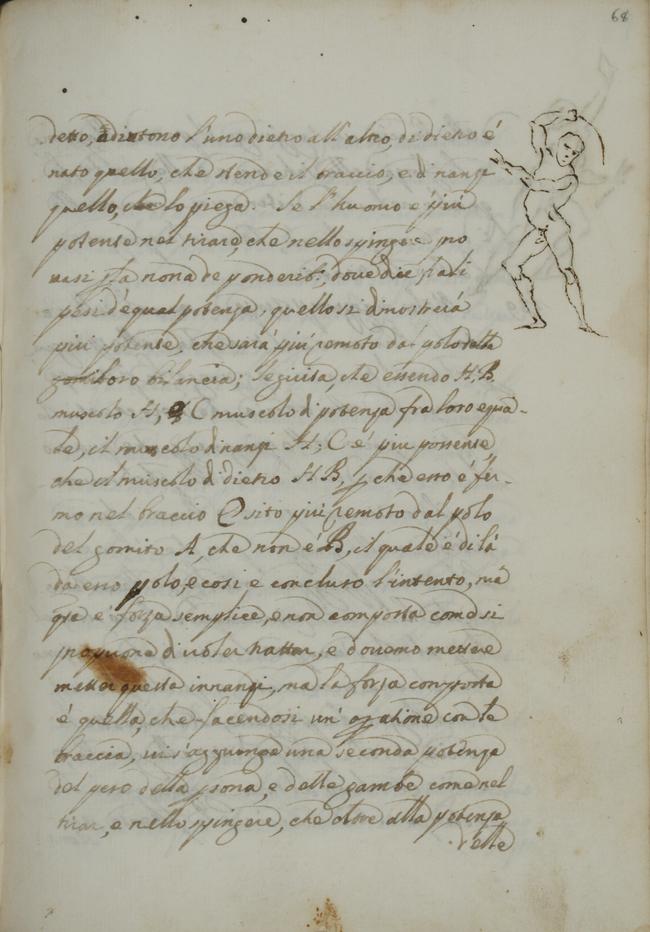 68
detto, adiutono l'uno dietro all'altro, di dietro é
nato quello, che stende il braccio, e dinanzi
quello, che lo piega. Se l'huomo é piú
potense nel tirare, che nello spingere pro
uasi p la nona de ponderib: doue dice, tra li
pesi d'equal potenza, quello si dimostrerá
piu potente, che sará piú remoto dal polo della
bilancia; seguita, che essendo H, B,
muscolo H, C muscolo di potenza fra loro equa-
le, il muscolo dinanzi H, C é piu possense
che il muscolo di dietro H B, p che esso é fer-
mo nel braccio C sito piú remoto dal polo
del gomito A, che non é B, il quale é di lá
da esso polo, e cosi e concluso l'intento, má
qsa é forza semplice, e non composta come si
propuone di uoler trattar, e douemo mettere
metter questa innanzi, ma la forza composta
é quella, che facendosi un' oparatione con le
braccia, ui s'aggiunge una seconda potenza
del peso della psona, e delle gambe come nel
tirar, e nello spingere, che oltre alla potenza
delle